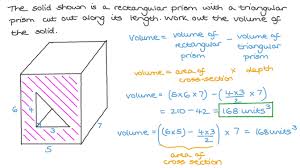 The solid shown is a rectangular prism with a triangular
prism cut out along its length. Work out the volume of
the solid.
volume = volume of rectangular prism - volume of triangular prism
volume = area of cross-section x depth
volume = (6×5×7) - (4×3/2 × 7)
= 210 - 42 = 168 units³
volume = (6×5 - 4×3/2) × 7 = 168 units³
area of
cross-section
6
4
3
5
7